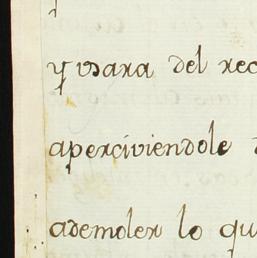 y usara del rec
aperciviendole
ademoler lo qu